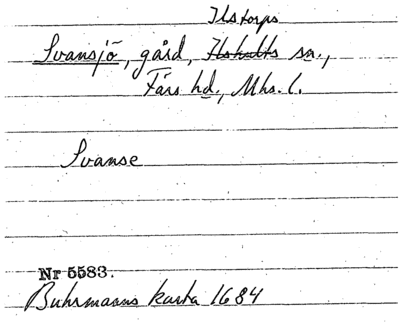 Ilstorps
Svansjö, gård, Ilshults sn.,
Färs hd., Mhs. l.
Svanse
Nr 5583.
Buhrmanns karta 1684